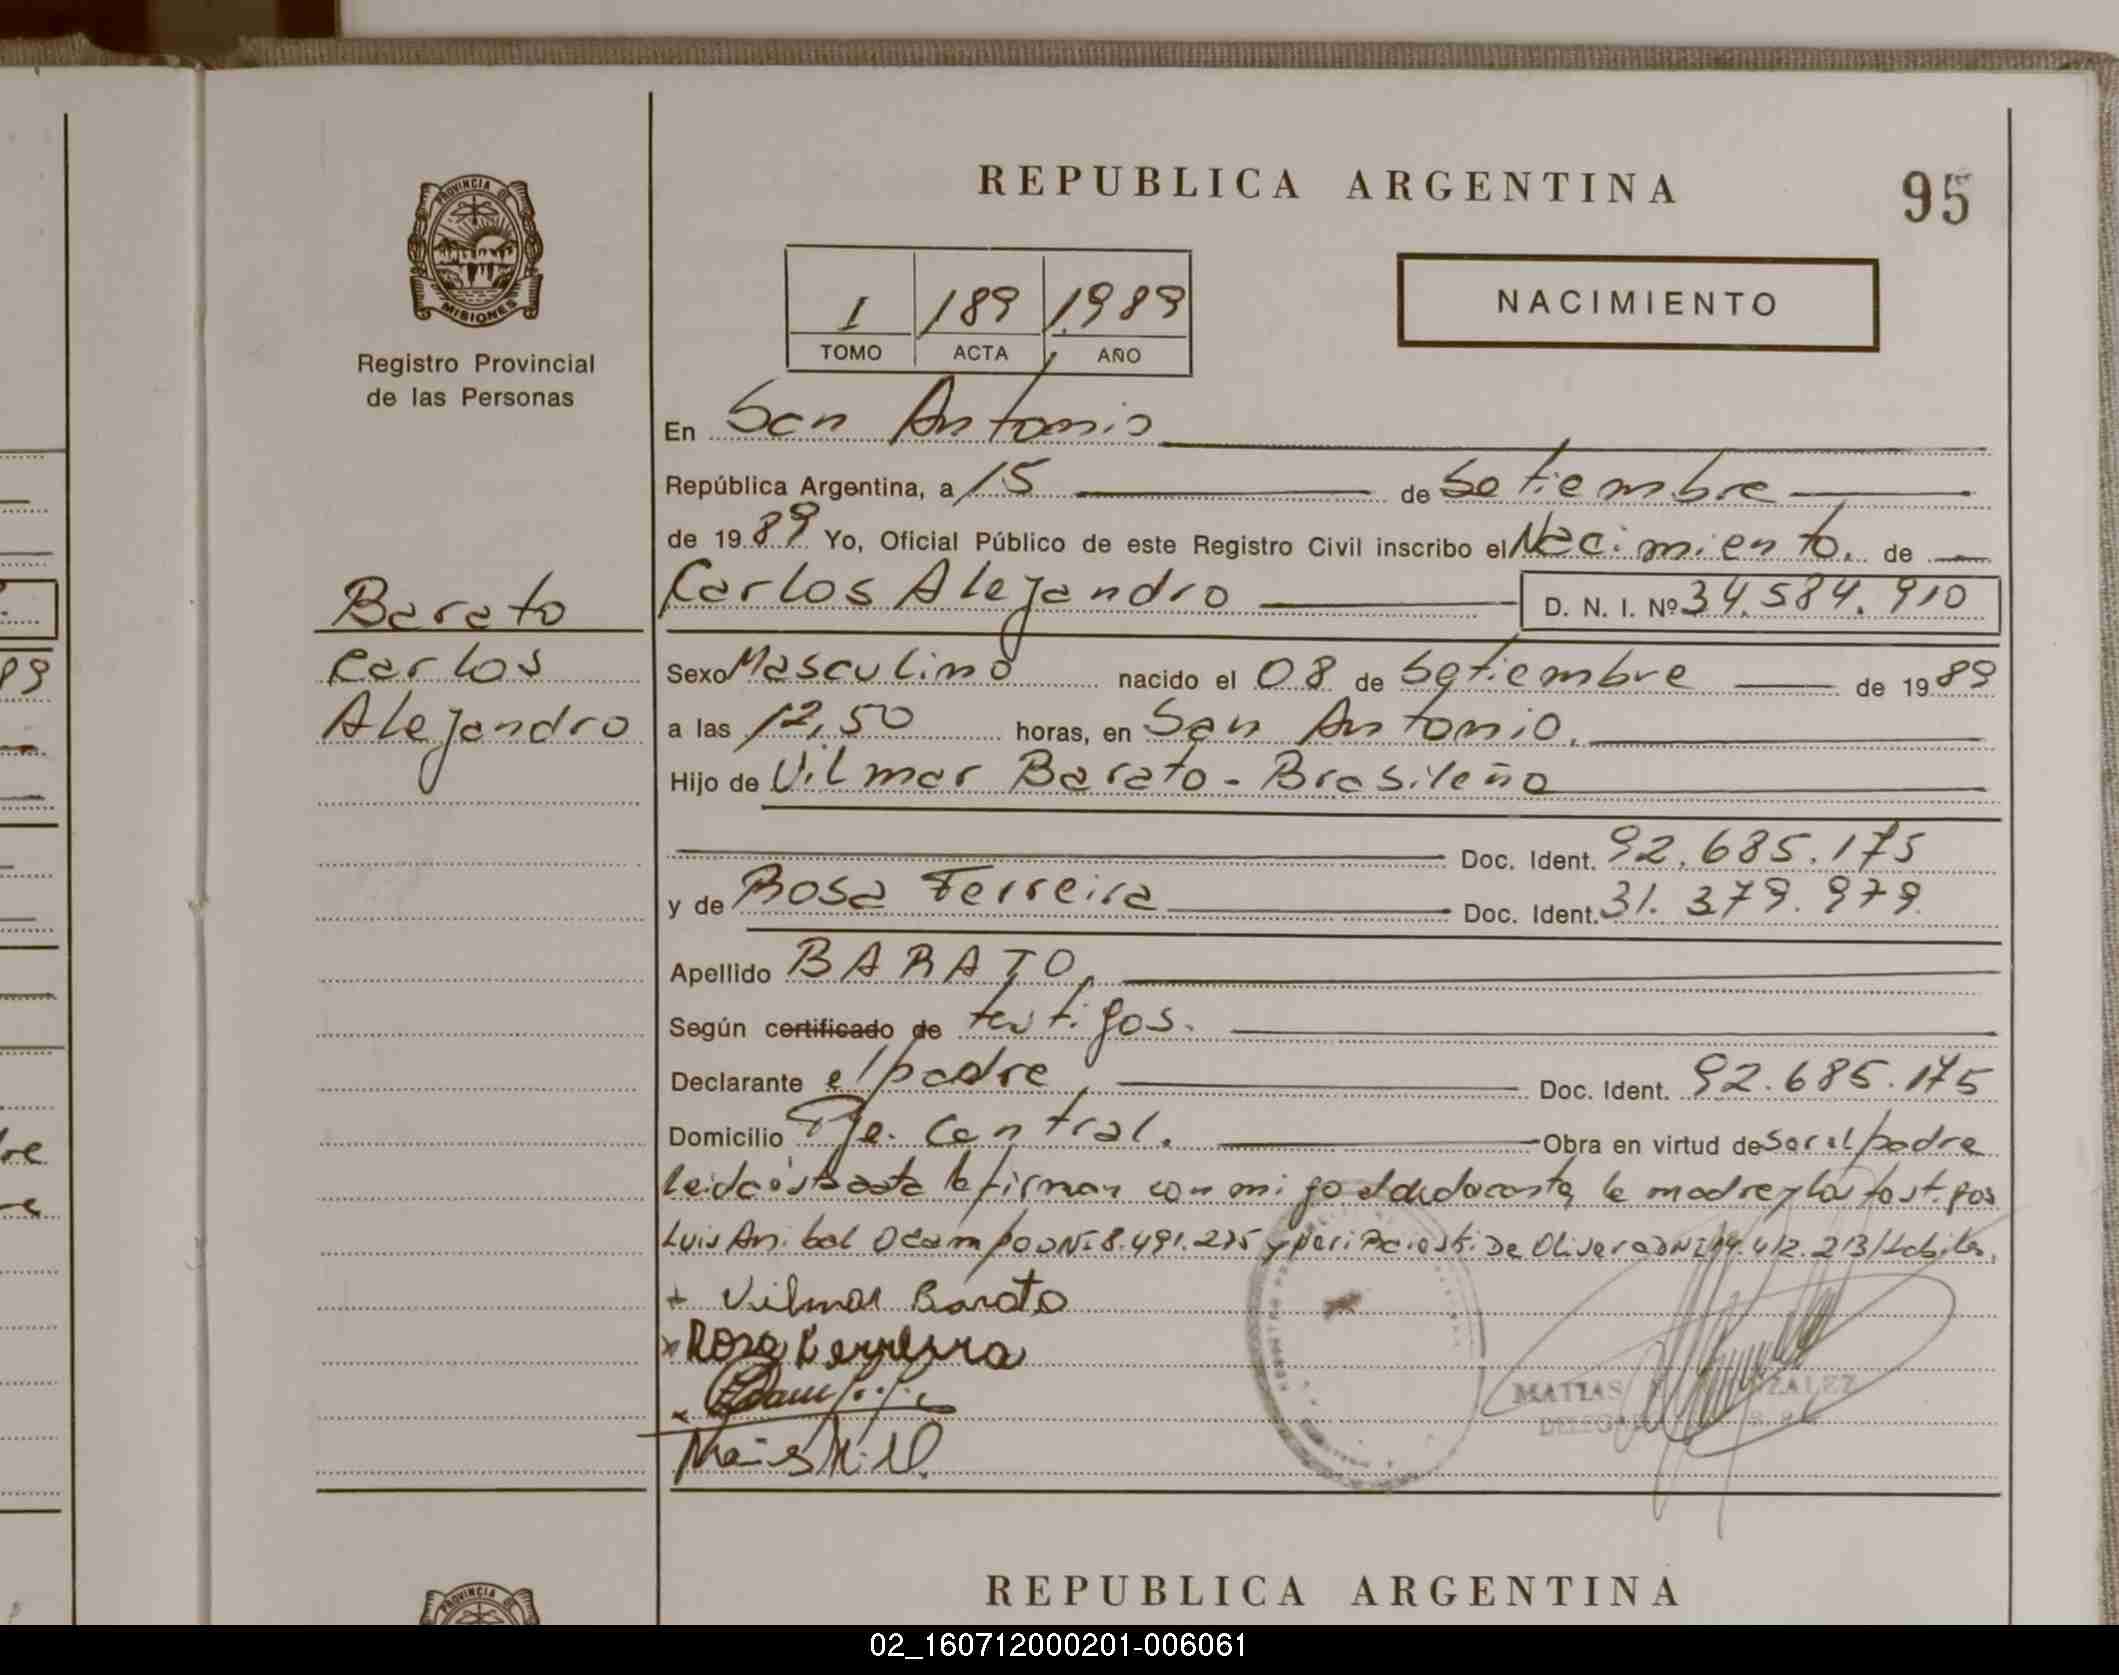 REPUBLICA ARGENTINA
95
PROVINCIA DE
MISIONES
Registro Provincial
de las Personas
I 189 1989
TOMO ACTA AÑO
NACIMIENTO
En San Antonio
República Argentina, a 15 de Setiembre
de 1989 Yo, Oficial Público de este Registro Civil inscribo el Nacimiento. de
Barato
Carlos Alejandro D. N. I. Nº 34.584.910
Carlos
Sexo Masculino nacido el 08 de Setiembre de 1989
Alejandro
a las 12,50 horas, en San Antonio.
Hijo de Vilmar Barato - Brasileño
Doc. Ident. 92.685.175
y de Rosa Ferreira Doc. Ident. 31.379.979
Apellido BARATO.
Según certificado de testigos.
Declarante el padre, Doc. Ident. 92.685.175
Domicilio Pje. Central. Obra en virtud de ser el padre
leida ésta acta la firman con migo el declarante, la madre y los testigos
Luis Anibal Ocampo DNI 8.491.275 y De Olivera DNI 14.412.213/
+ Vilmar Barato
x Rosa Ferreira
x
MATIAS GONZALEZ
REPUBLICA ARGENTINA
PROVINCIA DE
02_160712000201-006061